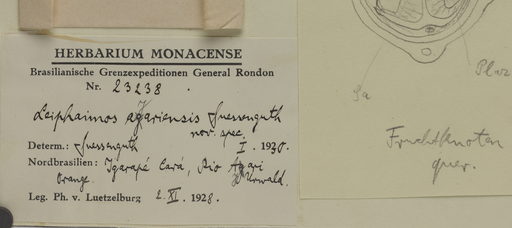 HERBARIUM MONACENSE
Brasilianische Grenzexpeditionen General Rondon
Nr. 23238.
Leiphaimos azariensis Suessenguth
nov. spec.
Determ.: Suessenguth I. 1930.
Nordbrasilien: Igarapé Cará, Rio
Orange. Urwald.
Leg. Ph. v. Luetzelburg 2. XI. 1928.
Sa
Plaz
Fruchtknoten
quer.